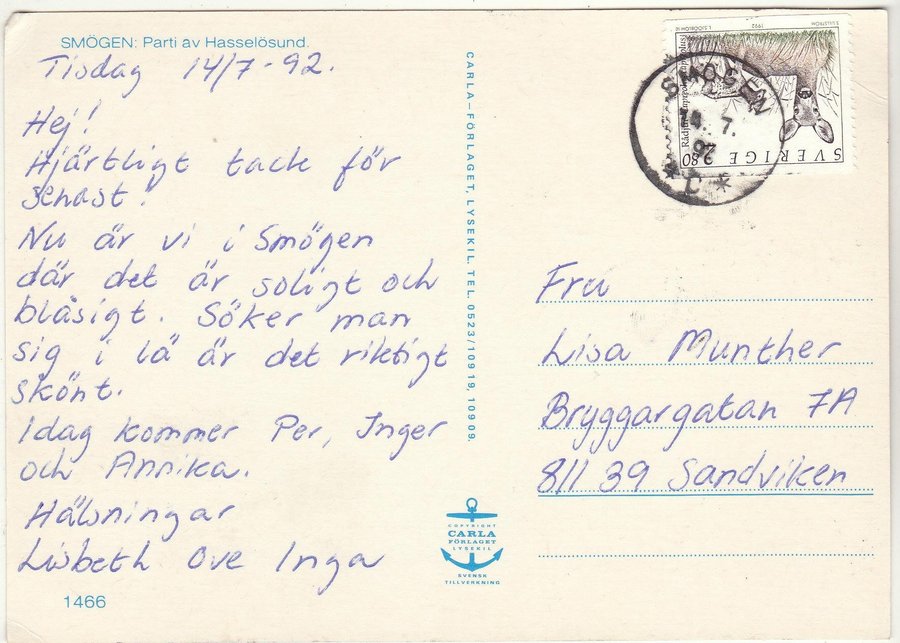 SMÖGEN: Parti av Hasselösund.
Tisdag 14/7-92.
Hej!
Hjärtligt tack för
senast!
Nu är vi i Smögen
där det är soligt och
blåsigt. Söker man
sig i lä är det riktigt
skönt.
Idag kommer Per, Inger
och Annika.
Hälsningar
Lisbeth Ove Inga
1466
CARLA-FÖRLAGET, LYSEKIL. TEL. 0523/109 19, 109 09.
COPYRIGHT
CARLA
FÖRLAGET
LYSEKIL
SVENSK
TILLVERKNING
1992
Rådjur
2.80
SVERIGE
SMÖGEN
7.
92
* C *
Fru
Lisa Munther
Bryggargatan 7A
811 39 Sandviken